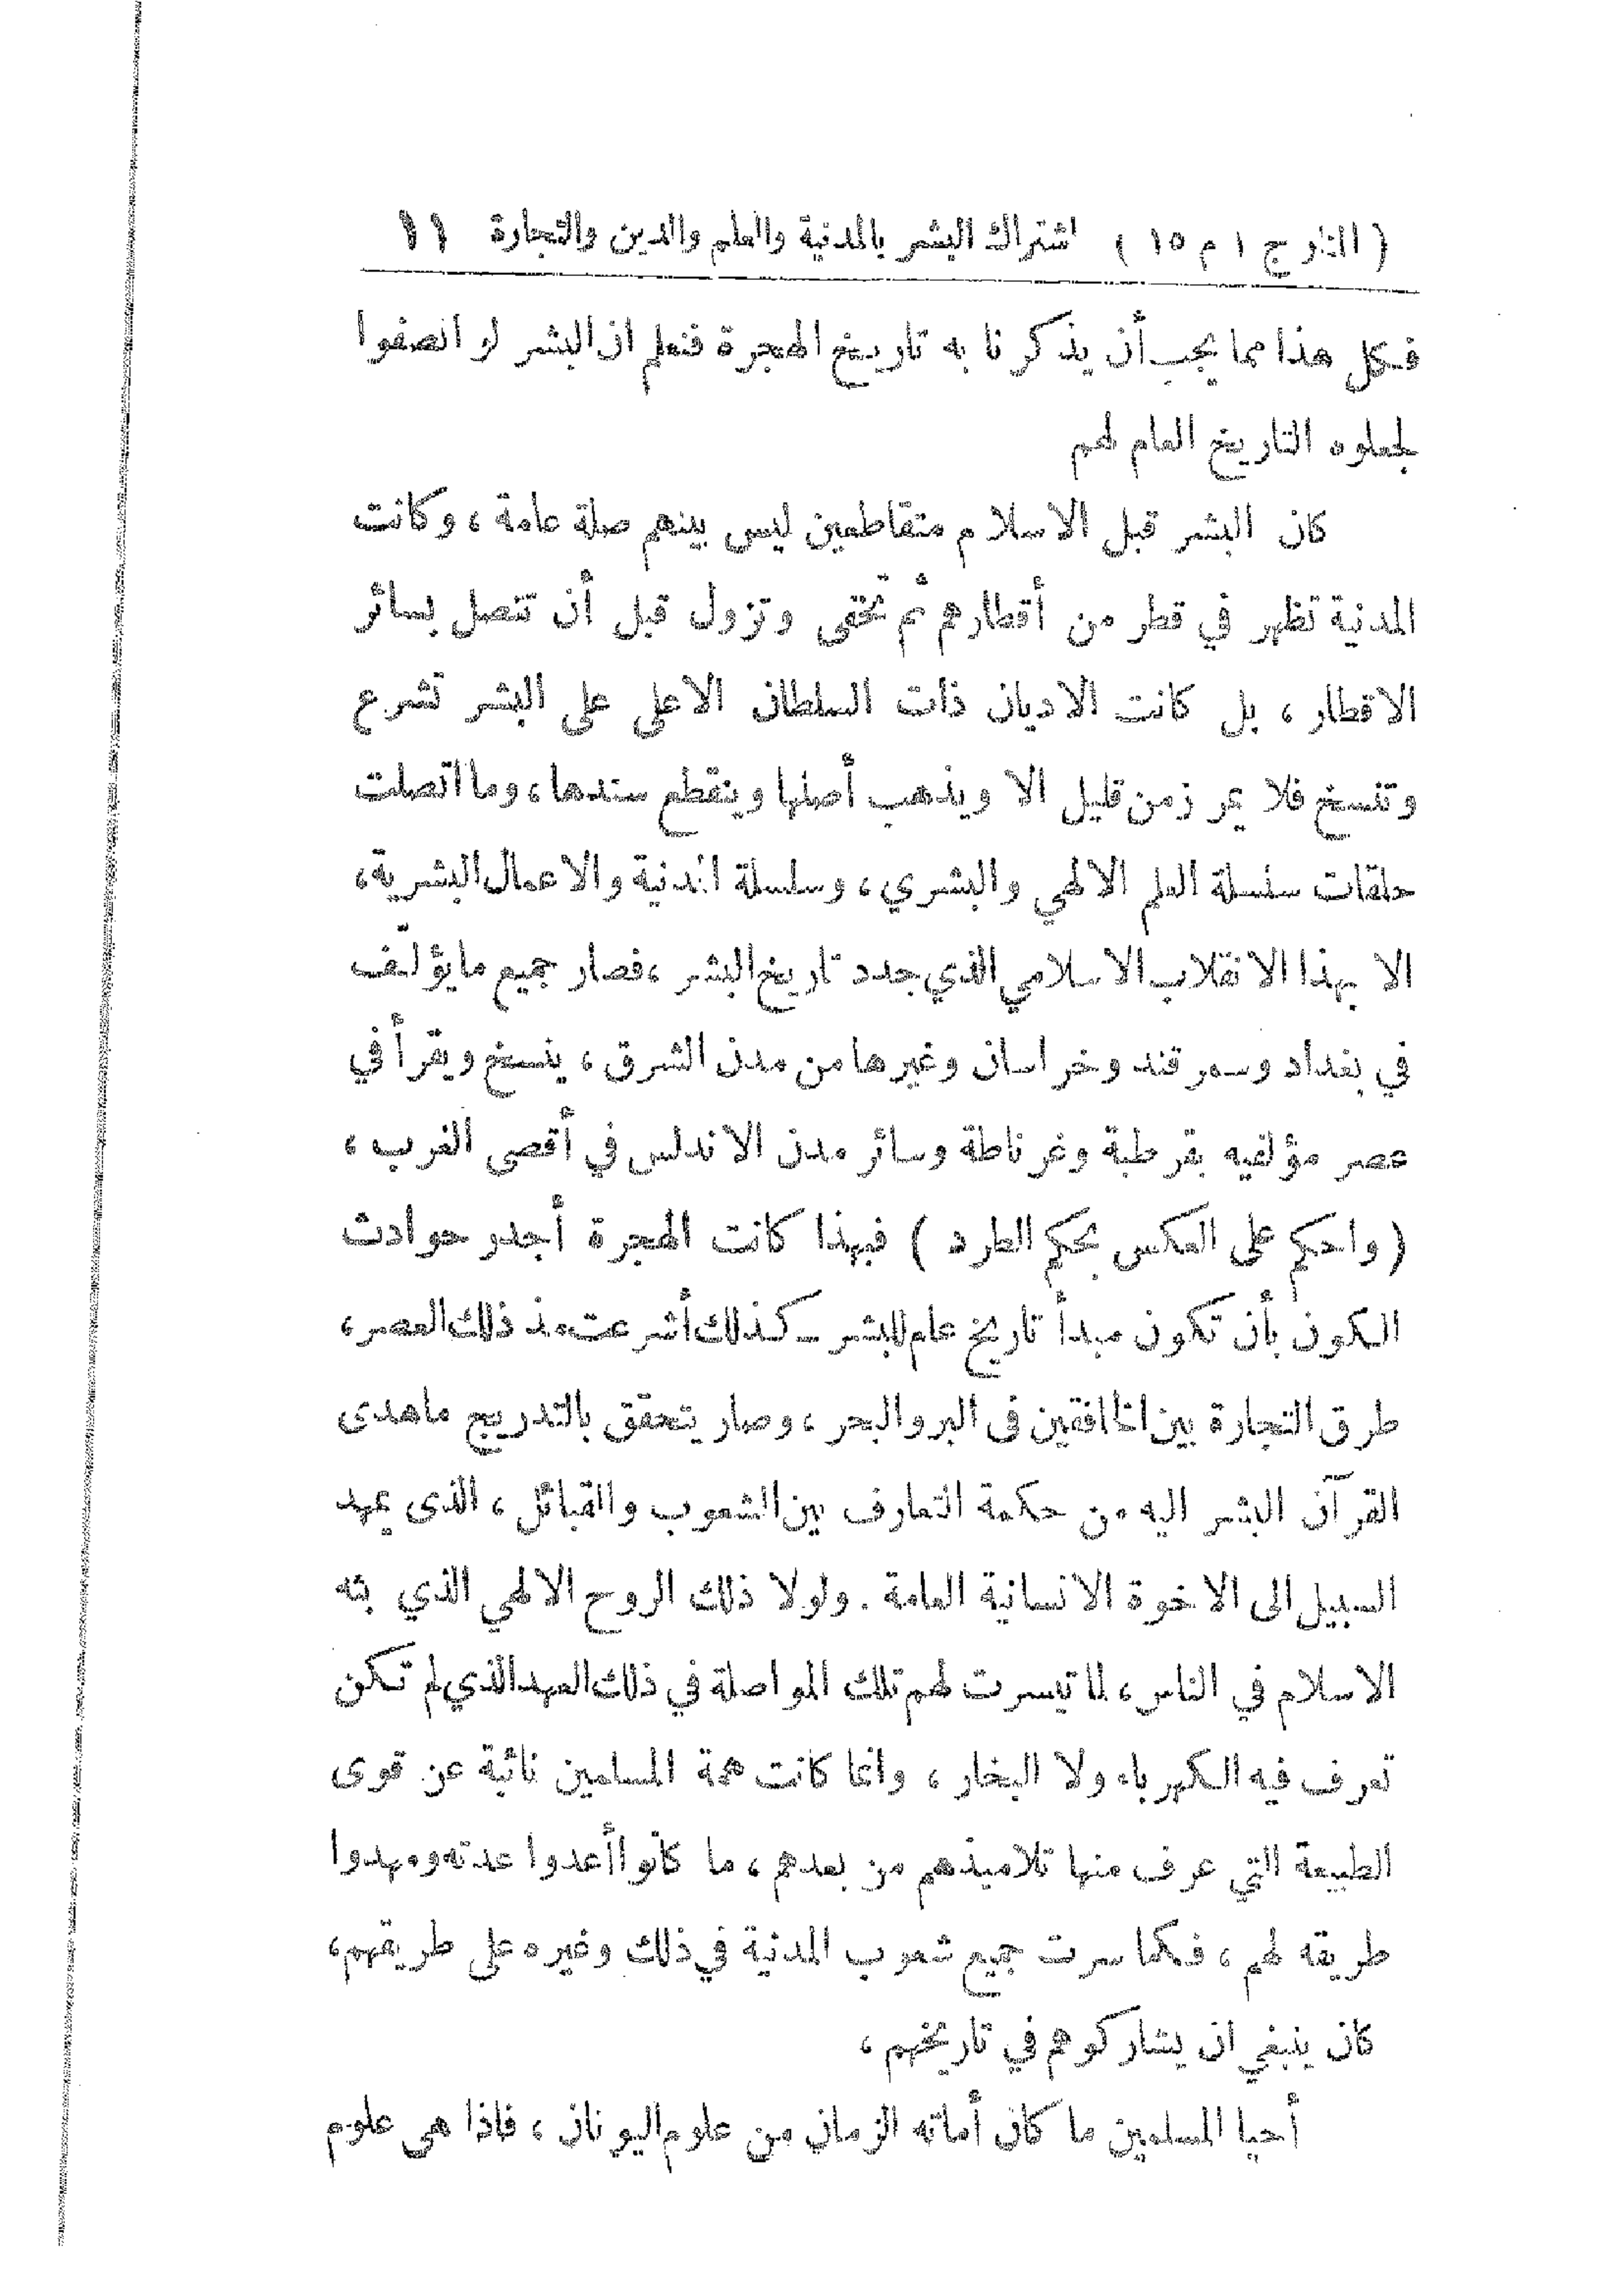 ( المنار ج ١ م ١٥ ) اشتراك البشر بالمدنية والعلم والدين والتجارة ١١
فكل هذا مما يجب أن يذكرنا به تاريخ الهجرة فنعلم ان البشر لو انصفوا
لجعلوه التاريخ العام لهم
كان البشر قبل الاسلام متقاطعين ليس بينهم صلة عامة ، وكانت
المدنية تظهر في قطر من أقطارهم ثم تخفى وتزول قبل أن تتصل بسائر
الاقطار ، بل كانت الاديان ذات السلطان الاعلى على البشر تشرع
وتنسخ فلا يمر زمن قليل الا ويذهب أصلها وينقطع سندها، وما اتصلت
حلقات سلسلة العلم الالهي والبشري ، وسلسلة المدنية والاعمال البشرية،
الا بهذا الانقلاب الاسلامي الذي جدد تاريخ البشر ، فصار جميع ما يؤلَّف
في بغداد وسمرقند وخراسان وغيرها من مدن الشرق ، ينسخ ويقرأ في
عصر مؤلفيه بقرطبة وغرناطة وسائر مدن الاندلس في أقصى الغرب ،
( واحكم على العكس بحكم الطرد ) فبهذا كانت الهجرة أجدر حوادث
الكون بأن تكون مبدأ تاريخ عام للبشر ـ كذلك أشرعت منذ ذلك العصر،
طرق التجارة بين الخافقين فى البر والبحر ، وصار يتحقق بالتدريج ما هدى
القرآن البشر اليه من حكمة التعارف بين الشعوب والقبائل ، الذى يمهد
السبيل الى الاخوة الانسانية العامة . ولولا ذلك الروح الالهي الذي بثه
الاسلام في الناس ، لما تيسرت لهم تلك المواصلة في ذلك العهد الذي لم تكن
تعرف فيه الكهرباء ولا البخار ، وانما كانت همة المسلمين نائبة عن قوى
الطبيعة التي عرف منها تلاميذهم من بعدهم ، ما كانوا أعدوا عدته ومهدوا
طريقه لهم ، فكما سرت جميع شعوب المدنية في ذلك وغيره على طريقهم،
كان ينبغي ان يشاركوهم في تاريخهم ،
أحيا المسلمين ما كان أماته الزمان من علوم اليونان ، فاذا هى علوم